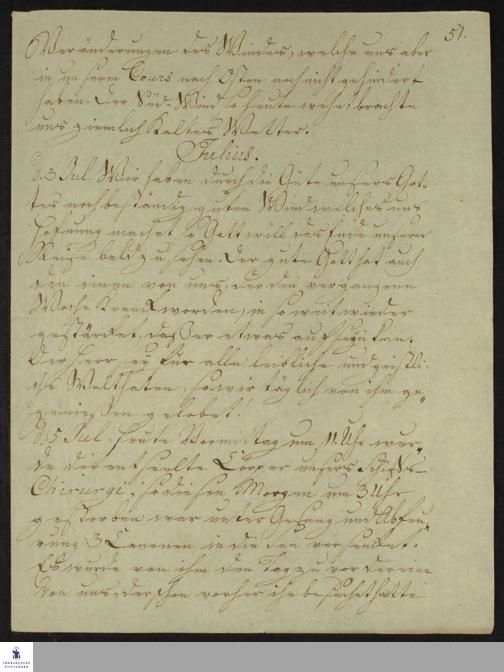 51.
Veränderungen des Windes, welche uns aber
in unserm Cours nach Osten noch nicht gehindert
haben. Der Süd-Wind so heute wehet brachte
uns ziemlich kaltes Wetter.
Julius.
d. 3 Jul. Wir haben durch die Güte unsers Got-
tes noch beständig guten Wind welches uns
Hofnung machet so Gott will das Ende unserer
Reise bald zu sehen. Der gute Gott hat auch
den einen von uns, der die vergangene
Woche kranck worden, in so weit wieder
gestärcket, daß er etwas auf seyn kan.
Der Herr sey für alle leibliche und geistli-
che Wolthaten, so wir täglich von ihm ge-
geniessen gelobet!
d. 5 Jul. Heute Vormittag um 11. Uhr wur-
de der entseelte Cörper unsers Schifs-
Chirurgi, so diesen Morgen um 3 Uhr
gestorben war unter Gesang und Abfeu-
rung 3 Canonen in die See versencket.
Es wurde von ihm den Tag zuvor der eine
von uns, der schon vorher ihn besuchet hatte
FRANCKESCHE STIFTUNGEN